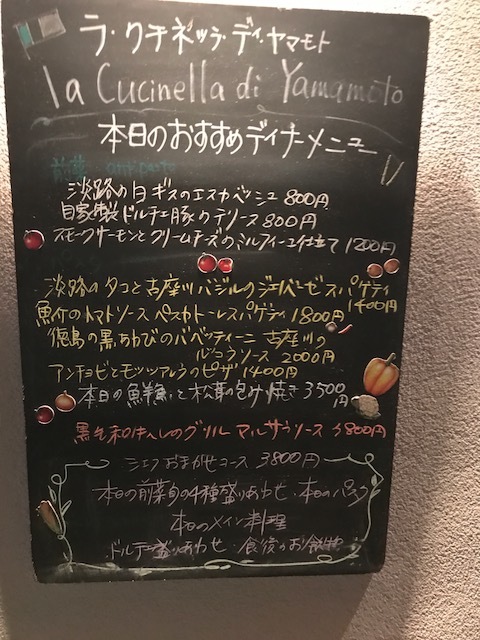 ラ・クチネッラ・ディ・ヤマモト
la Cucinella di Yamamoto
本日のおすすめディナーメニュー
前菜 antipasto
淡路の白ギスのエスカベッシュ 800円
自家製ドルチェ豚のテリーヌ 800円
スモークサーモンとクリームチーズのミルフィーユ仕立て 1200円
淡路のタコと古座川バジルのジェノベーゼ スパゲティ
1400円
魚介のトマトソース ペスカトーレスパゲティ 1800円
徳島の黒あわびのバベッティーニ 古座川の
ソース 2000円
アンチョビとモッツァレラのピザ 1400円
本日の鮮魚と松茸の包み焼き 3500
円
黒毛和牛のグリル マルサラソース 3800円
シェフおまかせコース 3800円
本日の前菜旬の4種盛りあわせ・本日のパスタ
本日のメイン料理
ドルチェ盛りあわせ・食後のお飲物